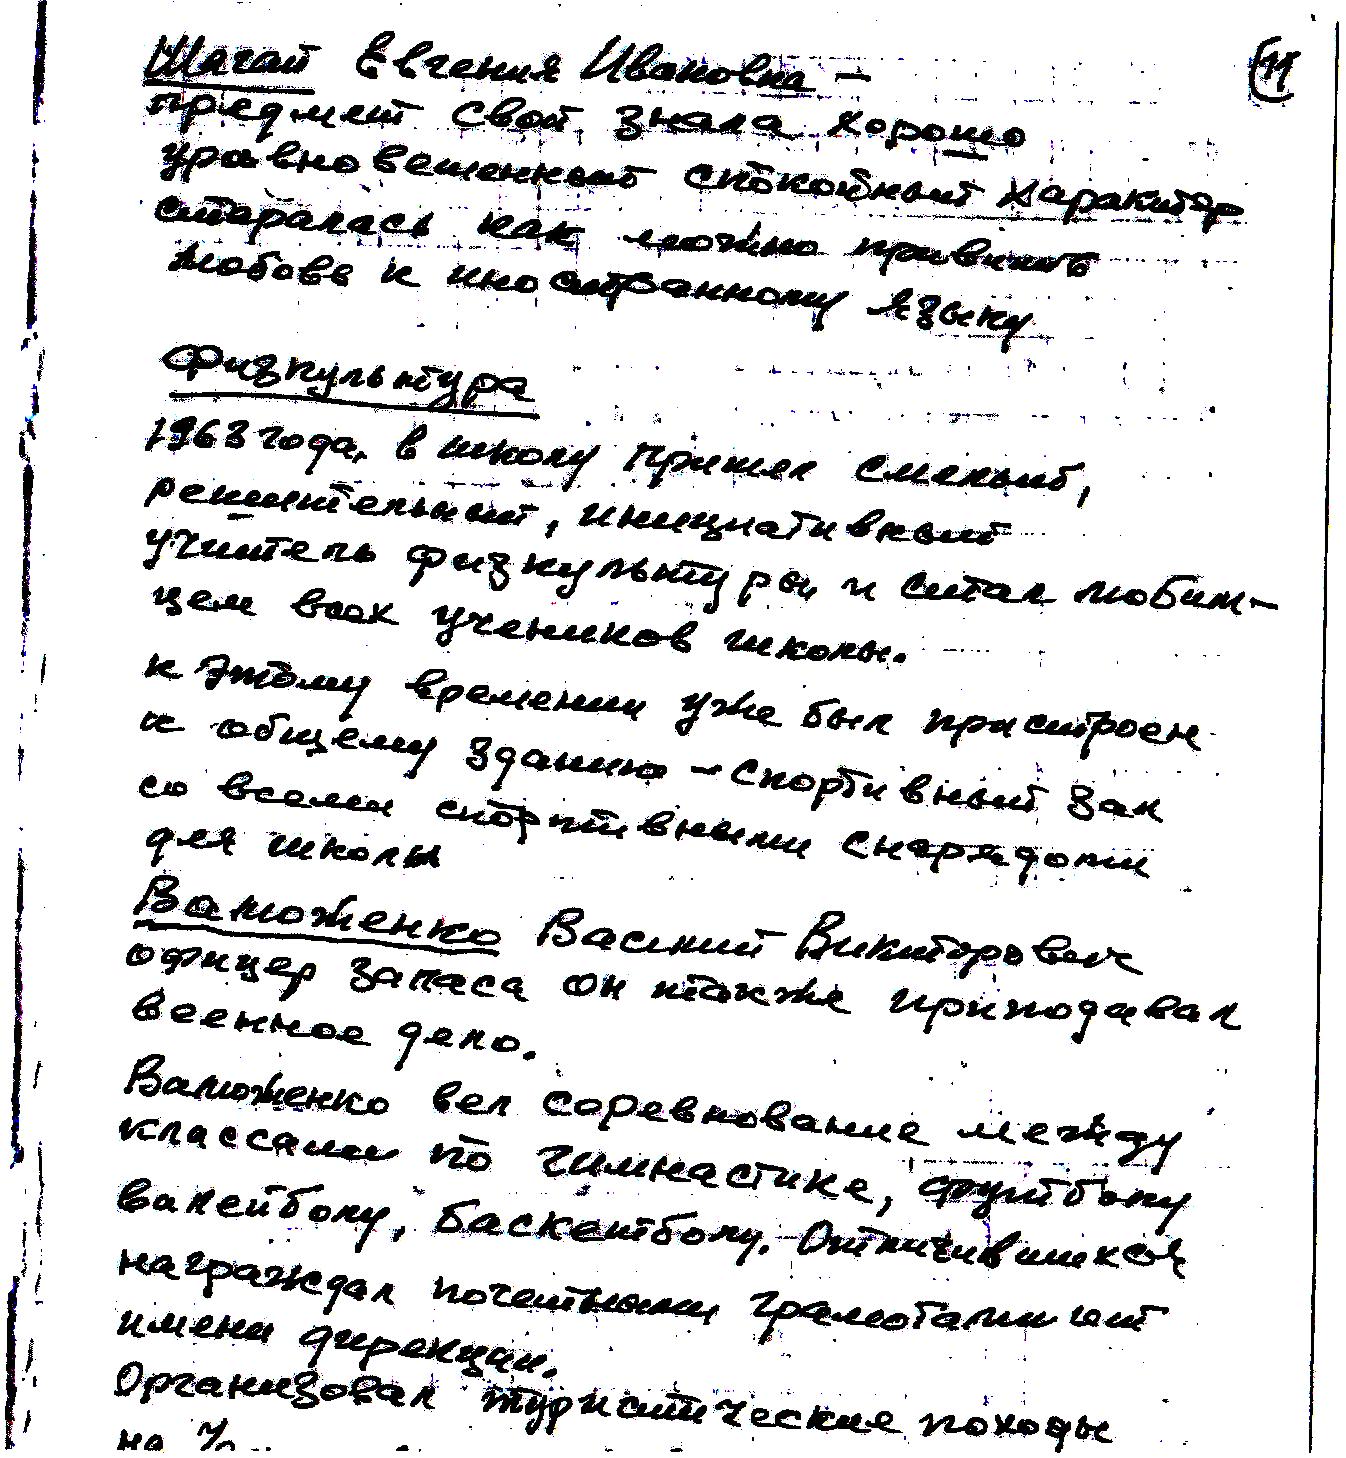 Шагай Евгения Ивановна –
предмет свой знала хорошо
уравновешенный спокойный характер
старалась как можно привить
любовь к иностранному языку
Физкультура
1963 года, в школу пришел смелый,
решительный, инициативный
учитель физкультуры, и стал любим-
цем всех учеников школы.
к этому времени уже был пристроен
к общему зданию – спортивный зал
со всеми спортивными снарядами
для школы
Валюженко Василий Викторович
офицер запаса он также приподавал
военное дело.
Валюженко вел соревнование между
классами по гимнастике, футболу
валейболу, баскетболу. Отличившихся
награждал почетными грамотами от
имени дирекции.
Организовал туристические походы
на